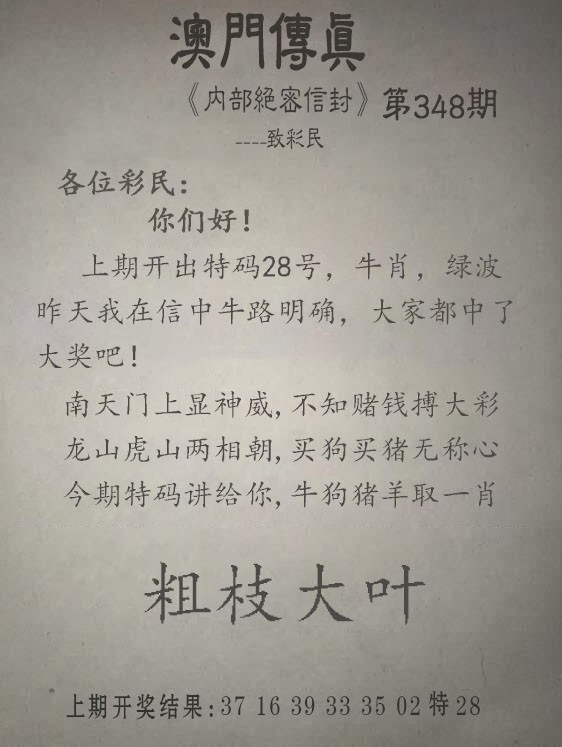 澳門傳眞
《内部絕密信封》第348期
----致彩民
各位彩民:
你们好!
上期开出特码28号，牛肖，绿波
昨天我在信中牛路明确，大家都中了
大奖吧!
南天门上显神威,不知赌钱搏大彩
龙山虎山两相朝,买狗买猪无称心
今期特码讲给你,牛狗猪羊取一肖
粗枝大叶
上期开奖结果:37 16 39 33 35 02 特 28